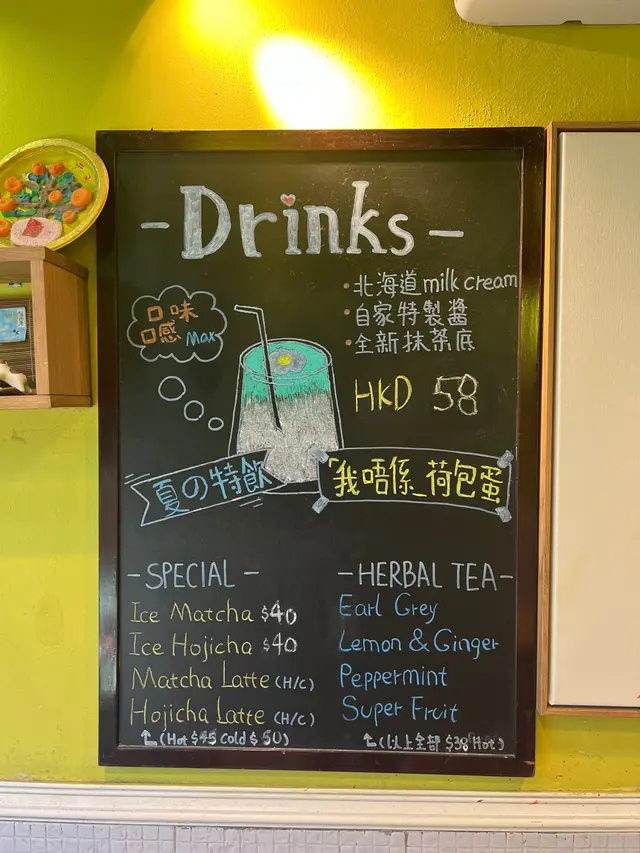 - Drinks -
• 北海道 milk cream
• 自家特製醬
• 全新抹茶底
口味
口感 Max
HKD 58
夏の特飲
「我唔係_荷包蛋
- SPECIAL -
Ice Matcha $40
Ice Hojicha $40
Matcha Latte (H/C)
Hojicha Latte (H/C)
(Hot $45 Cold $50)
- HERBAL TEA -
Earl Grey
Lemon & Ginger
Peppermint
Super Fruit
(以上全部 $38 Hot)